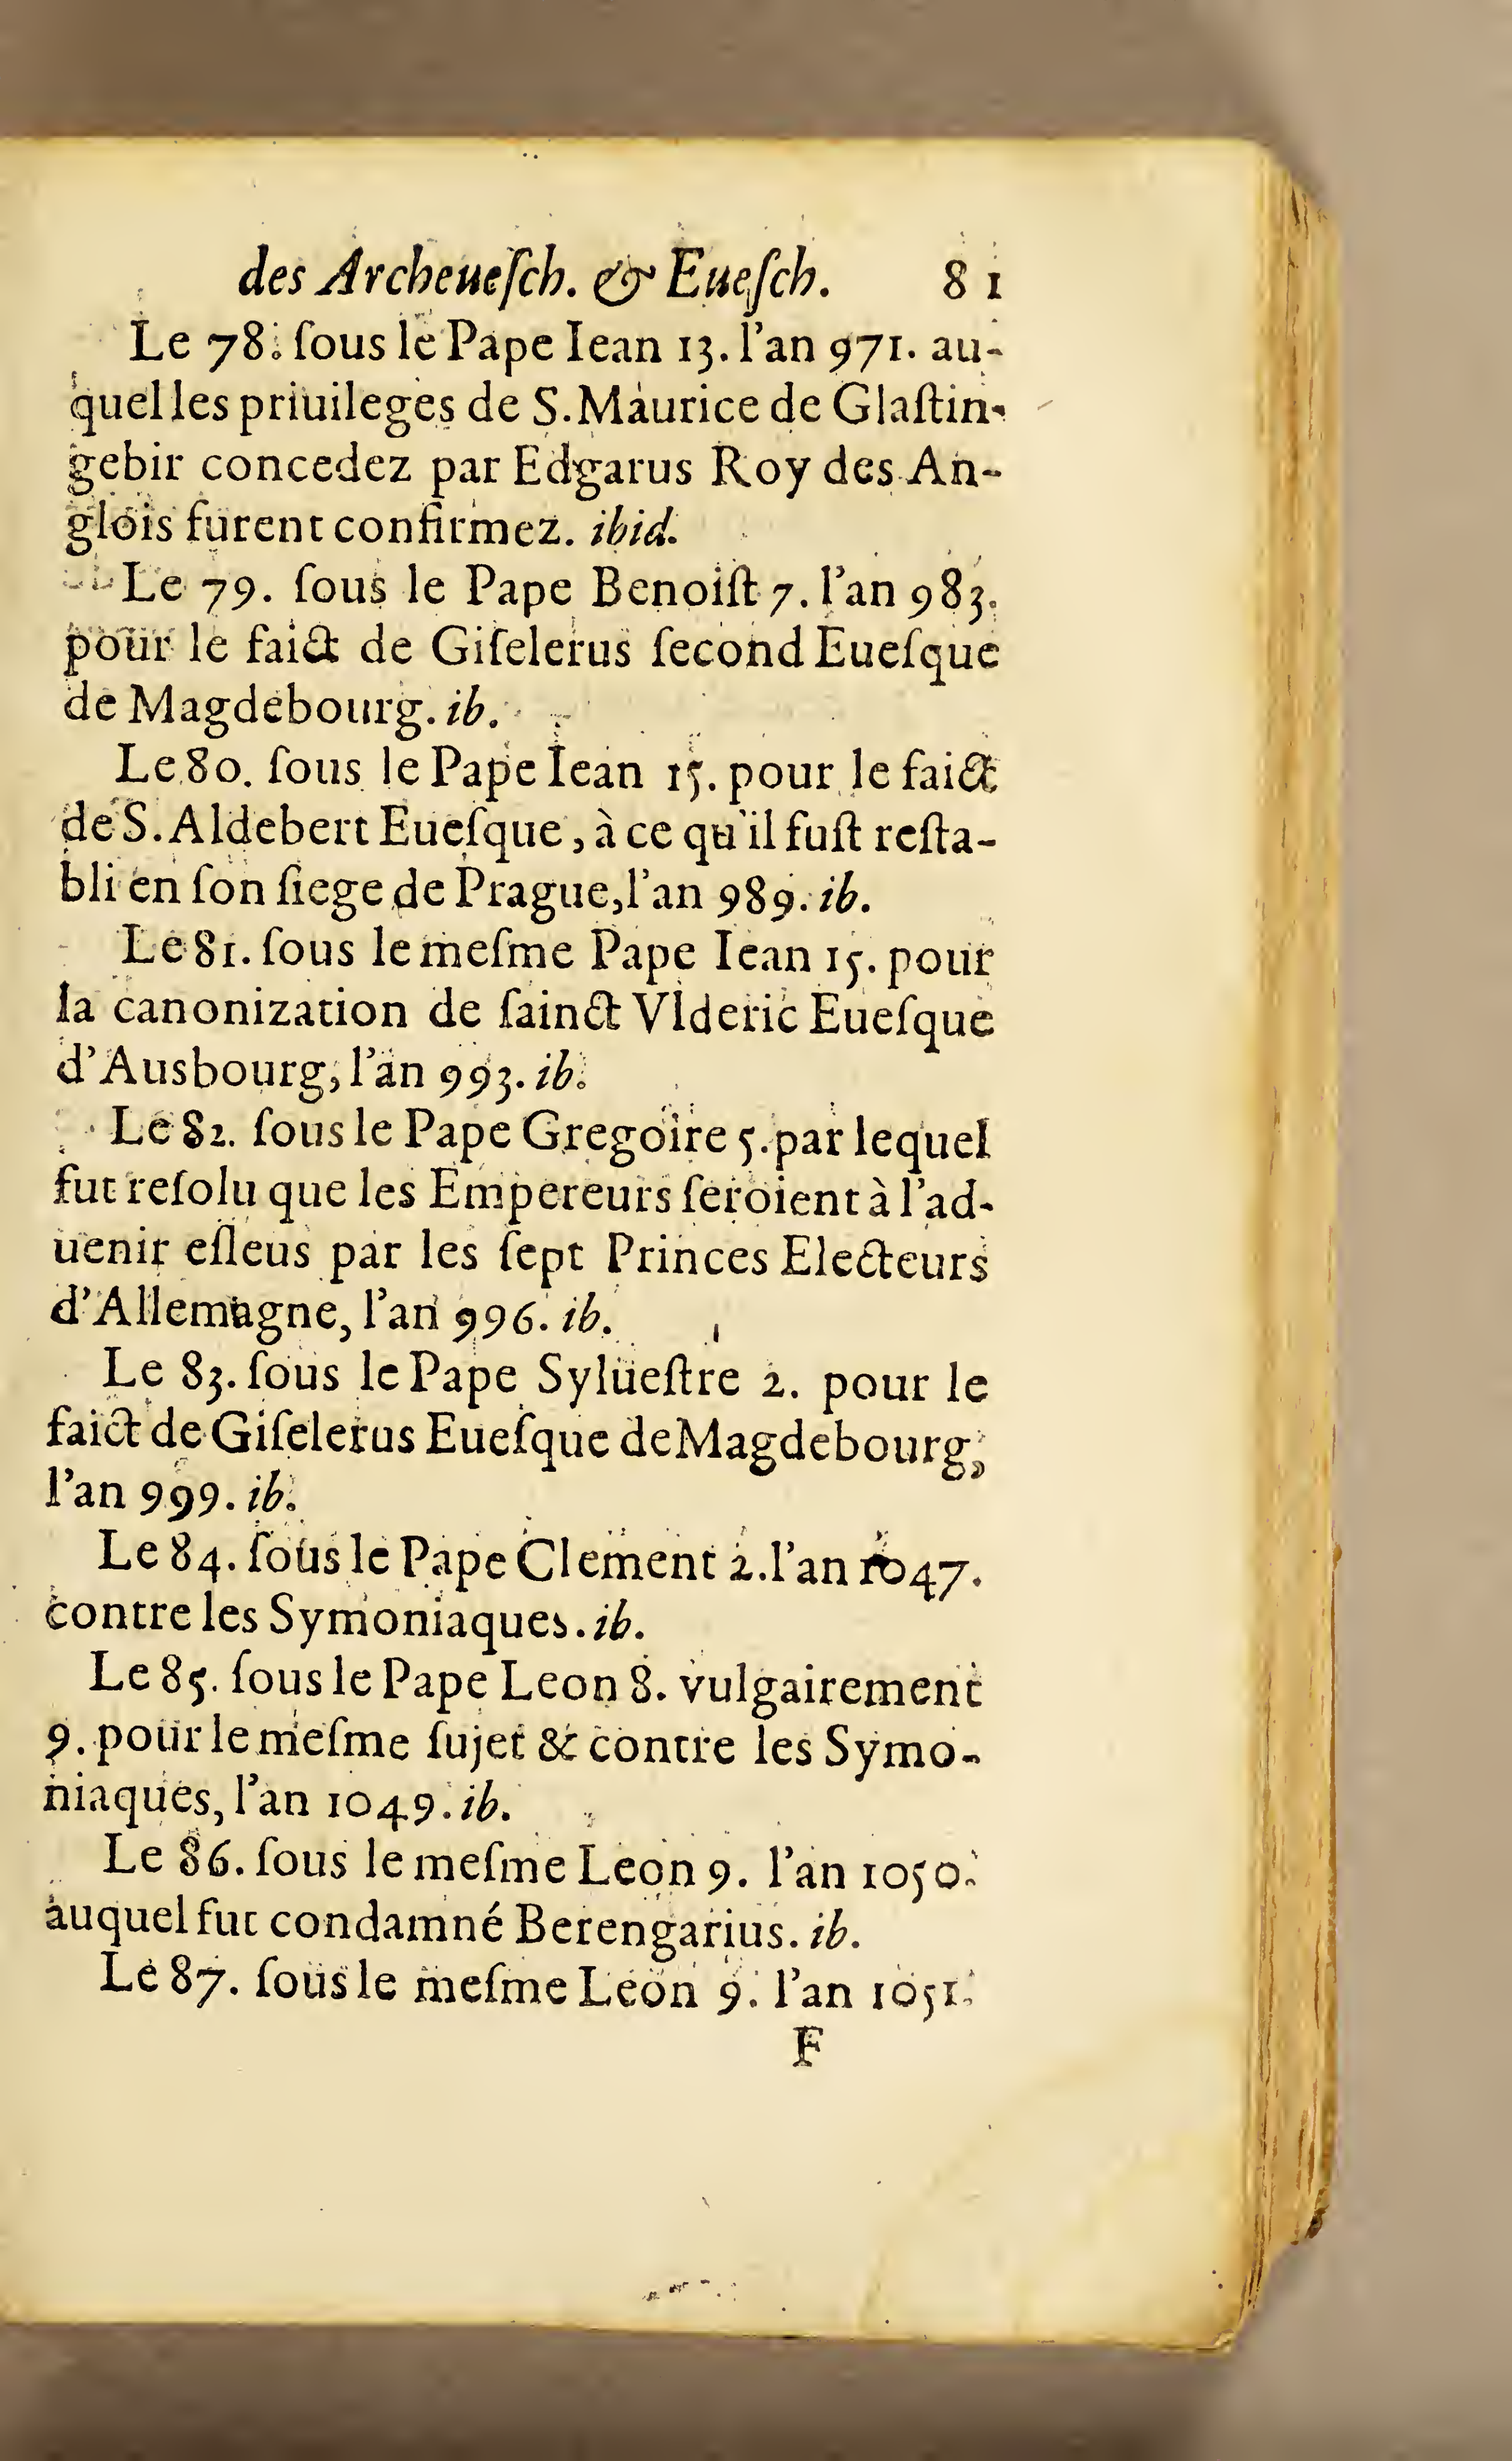 des Archeueſch. & Eueſch. 81
Le 78. ſous le Pape Iean 13. l'an 971. au-
quel les priuileges de S. Maurice de Glaſtin-
gebir concedez par Edgarus Roy des An-
glois furent confirmez. ibid.
Le 79. ſous le Pape Benoiſt 7. l'an 983.
pour le faict de Giſelerus ſecond Eueſque
de Magdebourg. ib.
Le 80. ſous le Pape Iean 15. pour le faict
de S. Aldebert Eueſque, à ce qu'il fuſt reſta-
bli en ſon ſiege de Prague, l'an 989. ib.
Le 81. ſous le meſme Pape Iean 15. pour
la canonization de ſainct Vlderic Eueſque
d'Ausbourg, l'an 993. ib.
Le 82. ſous le Pape Gregoire 5. par lequel
fut reſolu que les Empereurs ſeroient à l'ad-
uenir eſleus par les ſept Princes Electeurs
d'Allemagne, l'an 996. ib.
Le 83. ſous le Pape Sylueſtre 2. pour le
faict de Giſelerus Eueſque de Magdebourg,
l'an 999. ib.
Le 84. ſous le Pape Clement 2. l'an 1047.
contre les Symoniaques. ib.
Le 85. ſous le Pape Leon 8. vulgairement
9. pour le meſme ſujet & contre les Symo-
niaques, l'an 1049. ib.
Le 86. ſous le meſme Leon 9. l'an 1050.
auquel fut condamné Berengarius. ib.
Le 87. ſous le meſme Leon 9. l'an 1051.
F